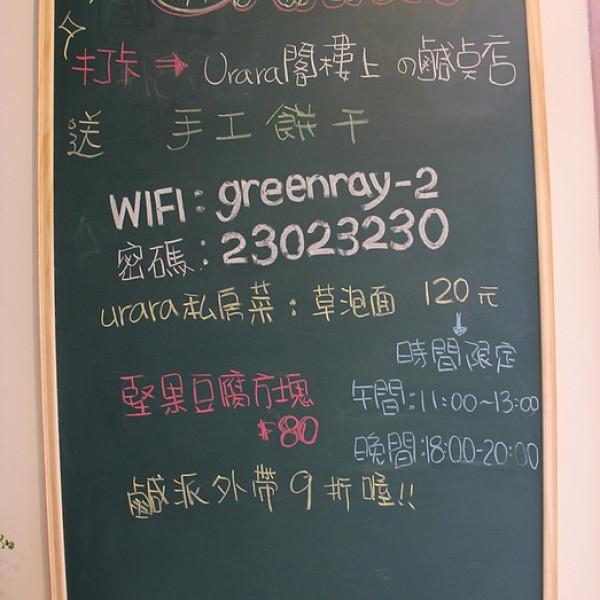 打卡 → Urara閣樓上の鹹桌店
送 手工餅干
WIFI：greenray-2
密碼：23023230
urara私房菜：草泡面 120元
↓
時間限定
堅果豆腐方塊 午間：11:00~13:00
$80
晚間：18:00-20:00
鹹派外帶9折喔!!